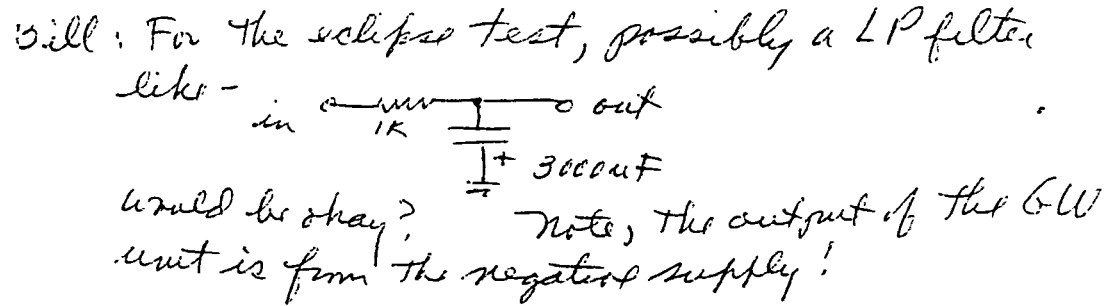 Bill: For the eclipse test, possibly a LP filter
like -
in 1K out
+ 3000uF
would be okay? Note, the output of the GW
unit is from the negative supply!